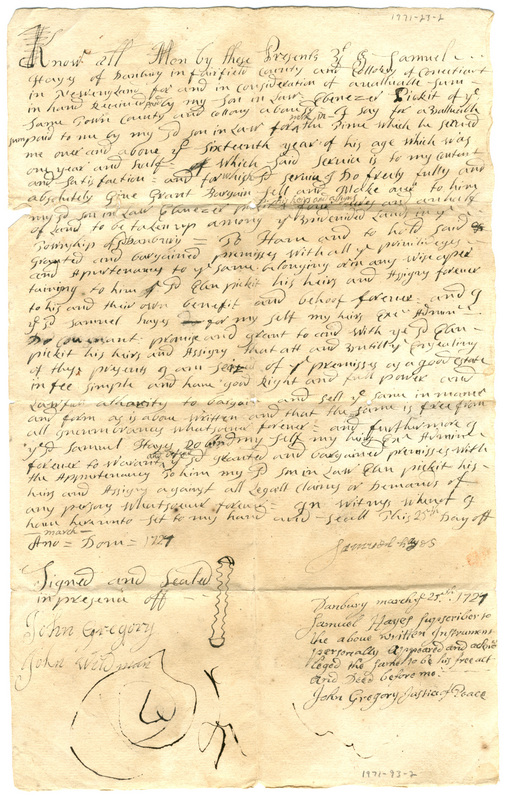 1971-23-2
Know all Men by these Presents yt I Samuel
Hayes of Danbury in Fairfield County and Collony of Conecticut
in New england for and in consideration of a valluable sum
in hand Received by my son in Law Ebenezer Pickit of ye
same Town County and Collony above I say for a valluable
sum paid to me by my sd son in Law for the Time which he served
me over and above ye sixteenth year of his age which was
one year and half which said service is to my content
and satisfaction and for which sd service Do freely fully and
absolutely Give Grant Bargain sell and Make over to him
my sd son in Law Ebenezer pickit his heirs and assigns
of Land to be taken up among ye undevided Land in ye
Township of Danbury = To Have and to hold said
Granted and bargained premisses with all ye priviledges
and Appurtenances to ye same belonging or in any wise apper
taining to him ye sd Eben pickit his heirs and Assigns forever
to his and their own benefit and behoof forever and I
ye sd Samuel hayes for my self my heirs Exec Admin
Do covenant promise and grant to and with ye sd Eben
pickit his heirs and Assigns that att and Untill ye Ensealing
of thes presents I am seized of ye premisses as a good estate
in fee simple and have good Right and full power and
Lawfull athority to bargain and sell ye same in maner
and form as is above written and that the same is free from
all Incumbrances whatsoever forever = and furthermore I
ye sd Samuel Hayes Do bind my self my heirs Exec Admin
forever to Warant ye sd granted and bargained premisses with
the Appurtenances To him my sd son in Law Eben pickit his
heirs and Assigns against all Legall claims or Demands of
any person whatsoever forever = In Witness whereof I
have hereunto set to my hand and seall This 25th Day off
march
Ano = Dom = 1727
Samuel hayes
Signed and Sealed
in presence off
John Gregory
John
Danbury march ye 25th 1727
Samuel Hayes subscriber to
the above written Instrument
personally appeared and acknow
leged the same to be his free act
and Deed before me
John Gregory Justice of Peace
1971-93-2